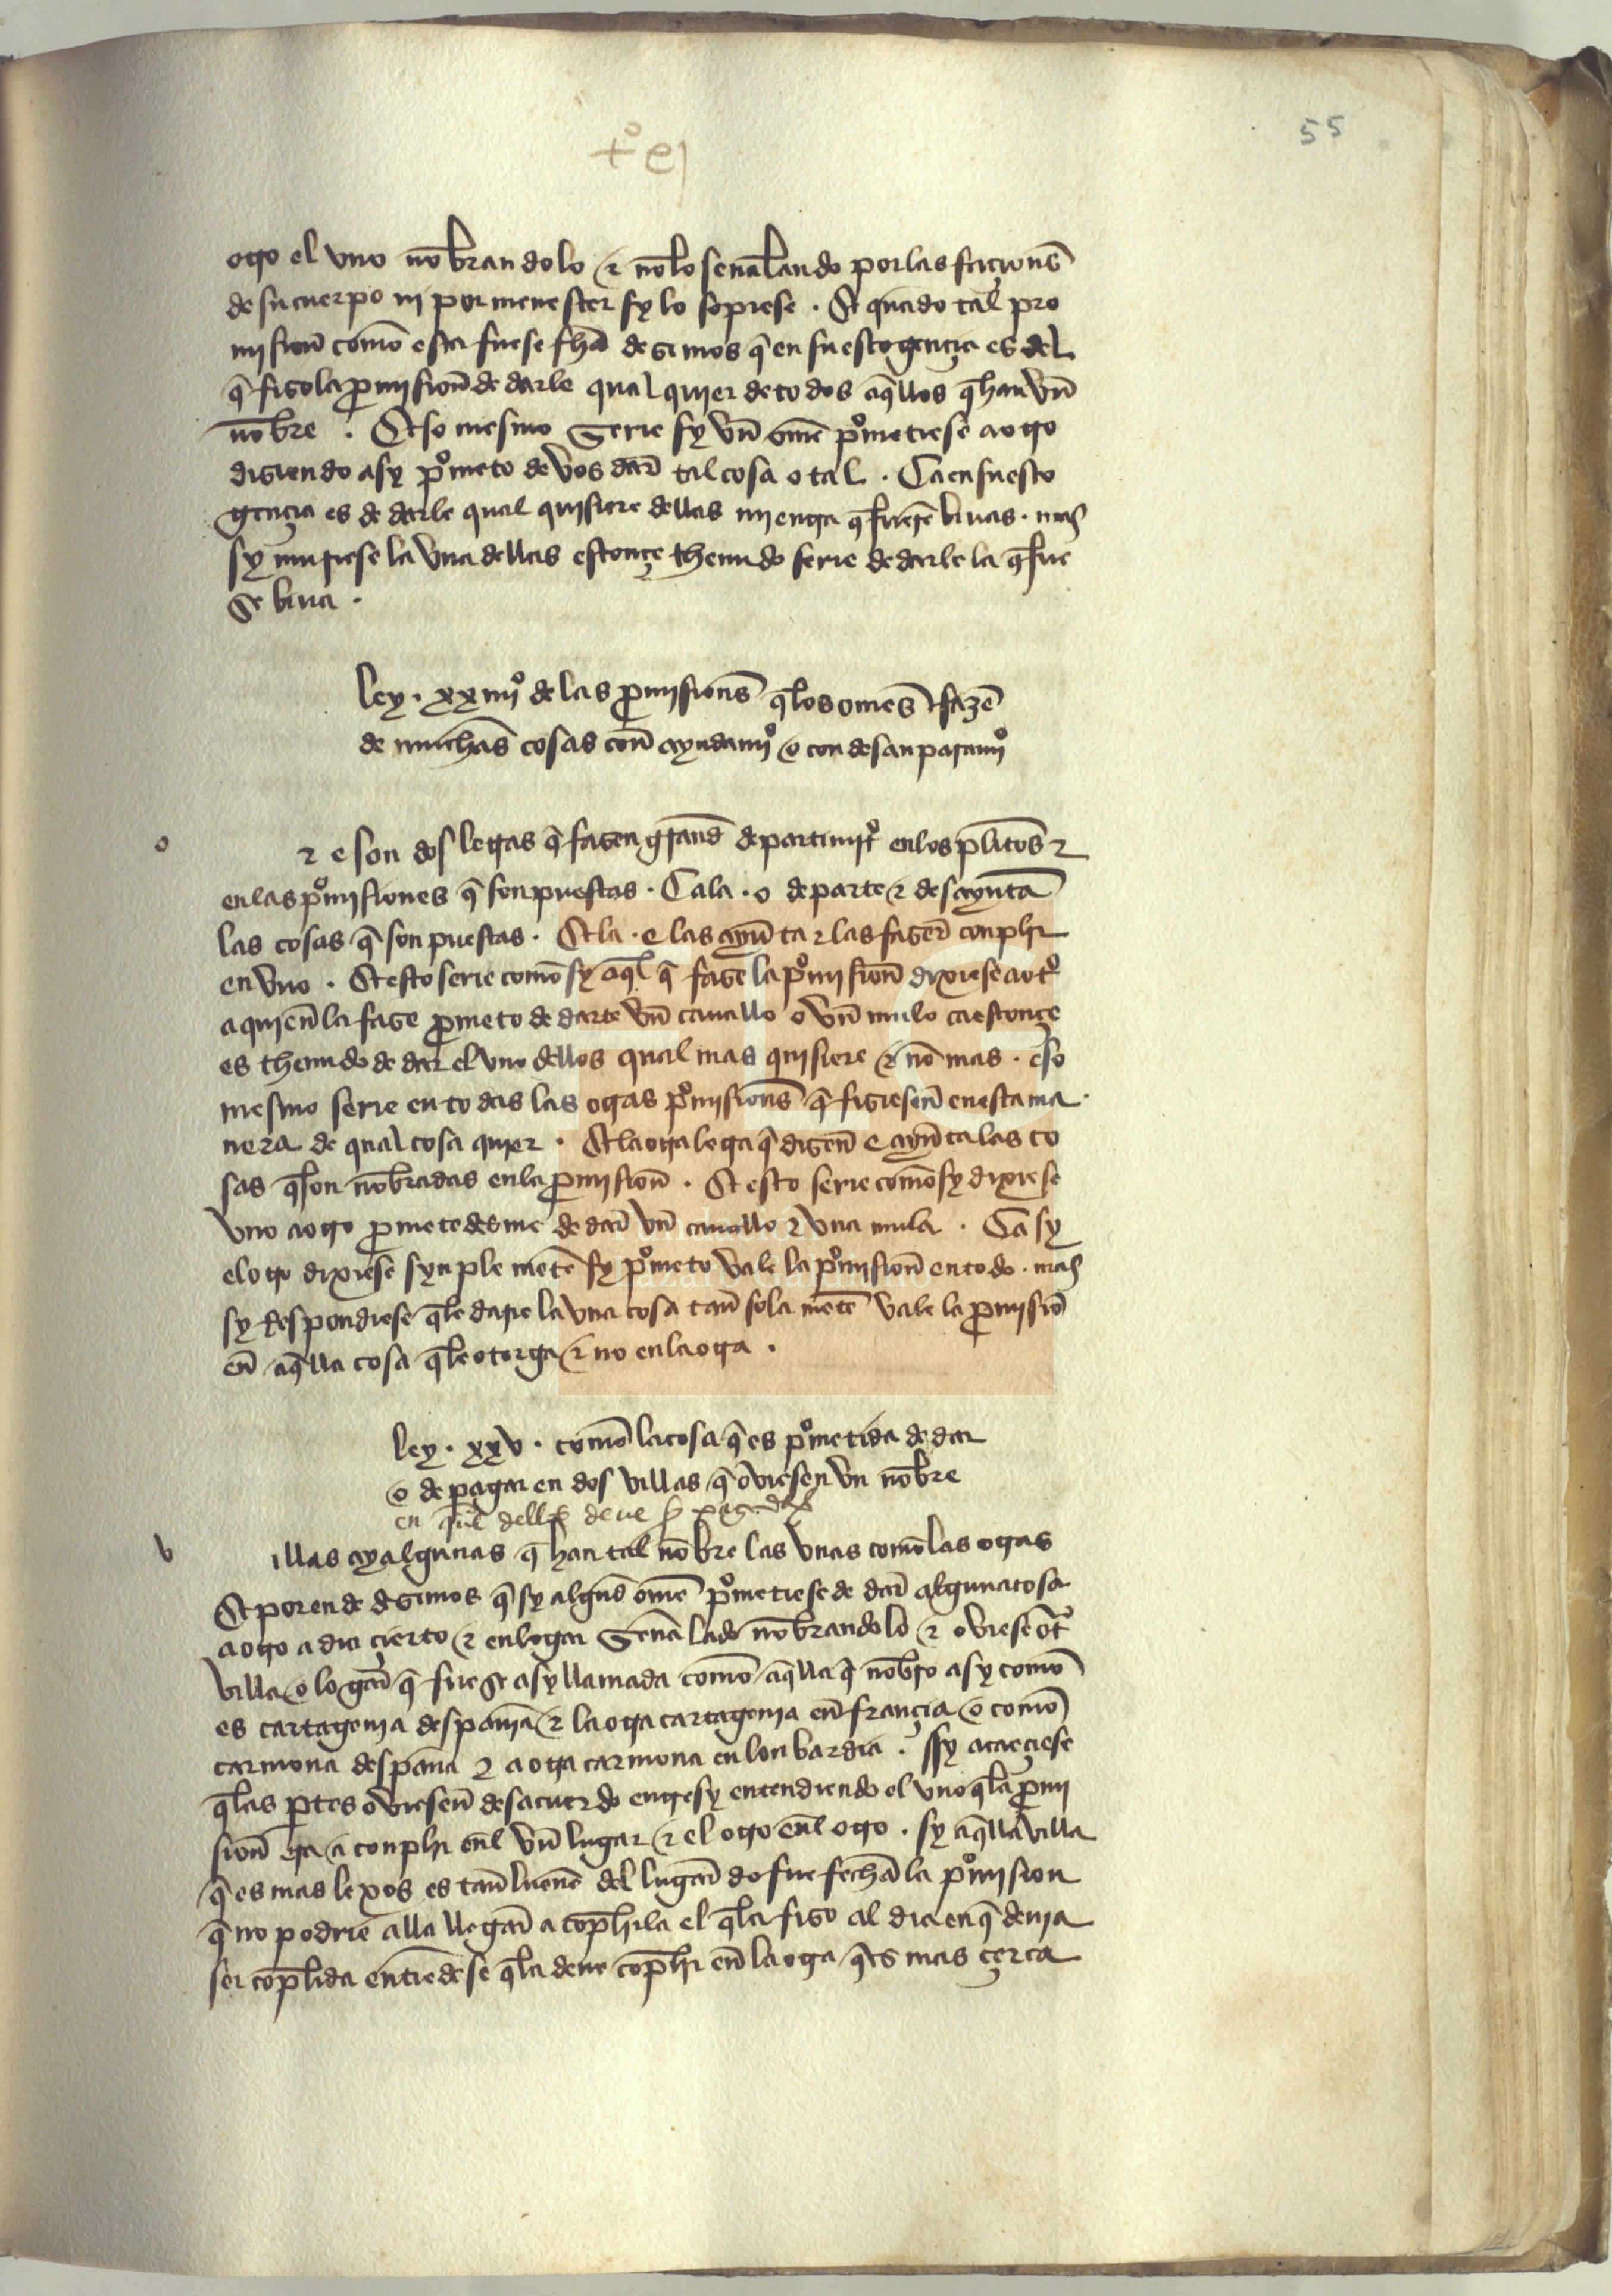 55
otro el vno nōbrandolo ⁊ nōlo señalando por las façionẽs
de su cuerpo nj por menester sy lo sopiese . Et quãdo tal pro
misioñ comō esta fuese fhã desimos q̃ en su escogençia es del
q̃ fiso la p̱misioñ de darle qual quier de todos aq̃llos q̃ han vñ
nōbre . Et so mesmo serie sy vñ omē pͦmetiese a otro
disiendo asy pͦmeto de vos dar̃ tal cosa o tal . Ca en su esco
gençia es de darle qual quisiere dellas mientra q̃ fuerẽ biuas . mas
sy muriese la vna dellas estonçe thenudo serie de darle la q̃ fue
se biua .
ley . xxiiijͦ de las p̱misionẽs q̃ los omẽs fazẽ
de muchas cosas coñ ayudamjͦ o con desanparamjͦ
o
⁊ e son dos letras q̃ fasen grand departimjͦ en los plitos ⁊
en las pͦmisiones q̃ son puestas . Ca la . o departe ⁊ desayunta
las cosas q̃ son puestas . Et la . e las ayũta ⁊ las faser̃ conplir
en vno . Et esto serie comō sy aq̃l q̃ fase la pͦmisioñ dixiese a otͦ
a quieñ la fase p̱meto de darte vñ cauallo o vñ mulo ca estonçe
es thenudo de dar el vno dellos qual mas quisiere ⁊ nō mas . eso
mesmo serie en todas las otras pͦmisionẽs q̃ fisieseñ en esta ma
nera de qual cosa quier . Et la otra letra q̃ diseñ e ayũta las co
sas q̃ son nōbradas en la p̱misioñ . Et esto serie comō sy dixiese
vno a otro p̱metedesme de dar̃ vñ cauallo ⁊ vna mula . Ca sy
el otro dixiese synple mẽte sy pͦmeto vale la pͦmisioñ en todo . mas
sy Respondiese q̃ le darie la vna cosa tañ sola mẽte vale la p̱misiō
eñ aq̃lla cosa q̃ le otorga ⁊ no en la otra .
ley . xxv . comō la cosa q̃ es pͦmetida de dar
o de pagar en dos villas q̃ oviesen vn nōbre
en q̃l dellas deue s̃ pagada
v
illas ay algunas q̃ han tal nōbre las vnas comō las otras
Et por ende desimos q̃ sy alguñ omē pͦmetiese de dar̃ alguna cosa
a otro a dia çierto ⁊ en logar senãlado nōbrandolo ⁊ oviese otͣ
villa o logar̃ q̃ fuese asy llamada comō aq̃lla q̃ nōbro asy comō
es cartagenia despanã ⁊ la otra cartagenia eñ françia o comō
carmona despanã ⁊ a otra carmona en lonbardia . ssy acaeçiese
q̃ las p̱tes ovieseñ desacuerdo entre sy entendiendo el vno q̃ la p̱mi
sioñ era a conplir enl̃ vñ lugar ⁊ el otro enl̃ otro . sy aq̃lla villa
q̃ es mas lexos es tañ luenẽ del lugar̃ do fue fecha la pͦmision
q̃ no podrie alla llegar̃ a cōplirla el q̃ la fiso al dia en q̃ deuia
ser cōplida entiẽdese q̃ la deue cōplir eñ la otra q̃ es mas çerca